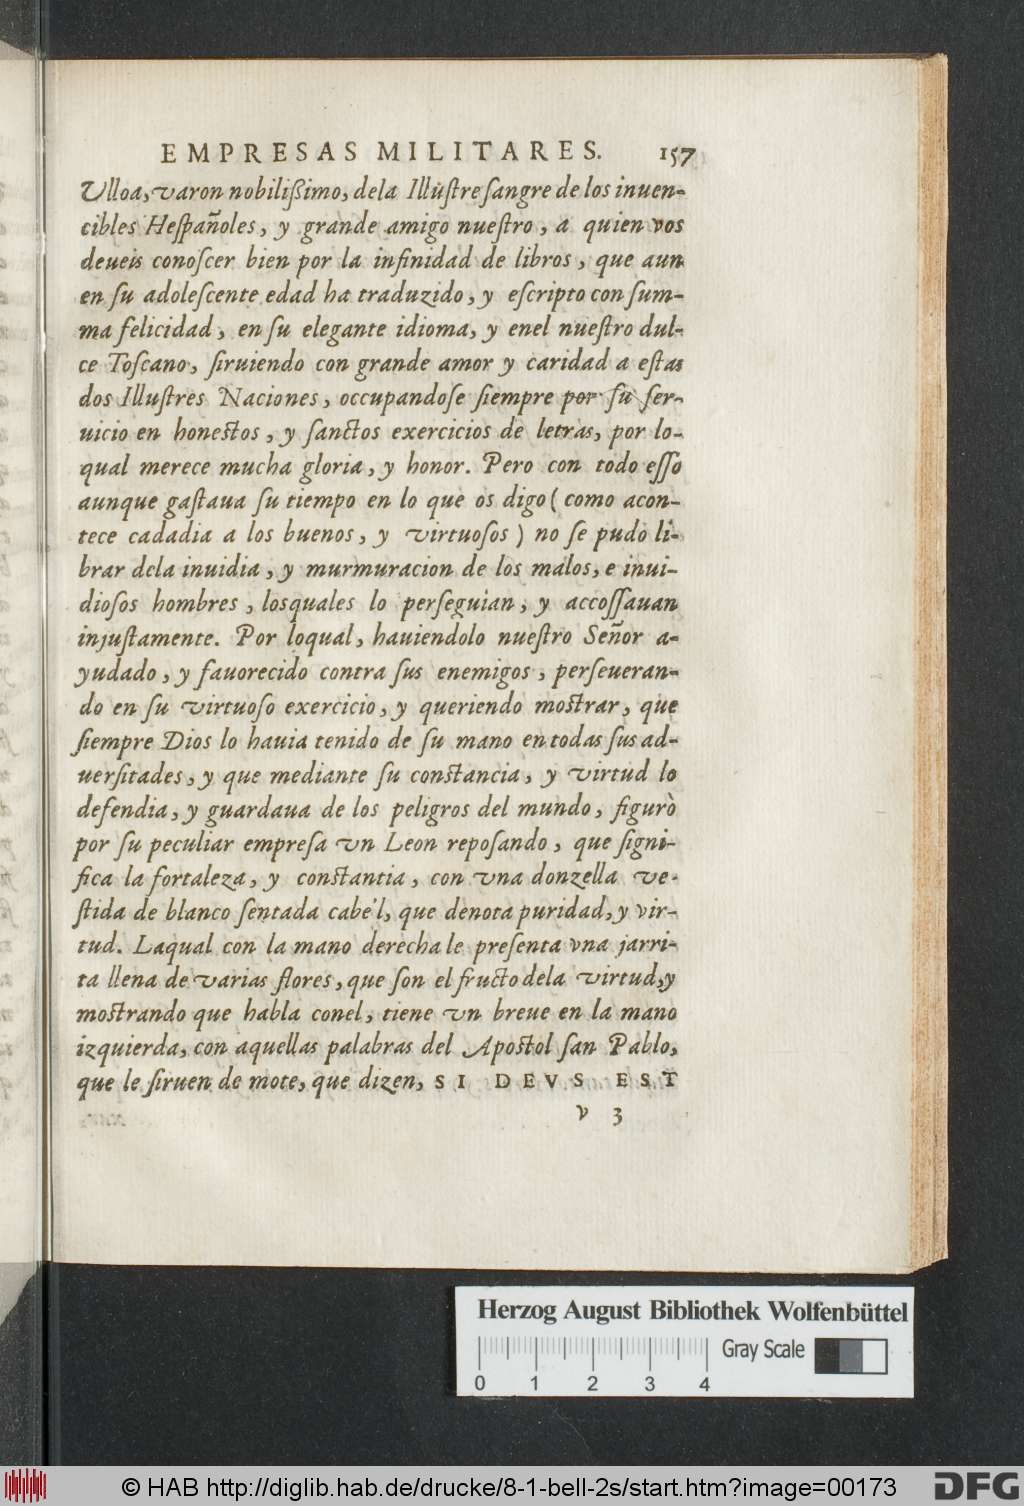 EMPRESAS MILITARES. 157
Ulloa, varon nobilißimo, dela Illuſtre ſangre de los inuen-
cibles Heſpañoles, y grande amigo nueſtro, a quien vos
deueis conoſcer bien por la infinidad de libros, que aun
en ſu adoleſcente edad ha traduzido, y eſcripto con ſum-
ma felicidad, en ſu elegante idioma, y enel nueſtro dul-
ce Toſcano, ſiruiendo con grande amor y caridad a eſtas
dos Illuſtres Naciones, occupandoſe ſiempre por ſu ſer-
uicio en honestos, y ſanctos exercicios de letras, por lo-
qual merece mucha gloria, y honor. Pero con todo eſſo
aunque gaſtaua ſu tiempo en lo que os digo (como acon-
tece cadadia a los buenos, y virtuoſos) no ſe pudo li-
brar dela inuidia, y murmuracion de los malos, e inui-
dioſos hombres, losquales lo perſeguian, y accoſſauan
injuſtamente. Por loqual, hauiendolo nueſtro Señor a-
yudado, y fauorecido contra ſus enemigos, perſeueran-
do en ſu virtuoſo exercicio, y queriendo mostrar, que
ſiempre Dios lo hauia tenido de ſu mano en todas ſus ad-
uerſitades, y que mediante ſu constancia, y virtud lo
defendia, y guardaua de los peligros del mundo, figurò
por ſu peculiar empreſa vn Leon repoſando, que ſigni-
fica la fortaleza, y constantia, con vna donzella ve-
ſtida de blanco ſentada cabe'l, que denota puridad, y vir-
tud. Laqual con la mano derecha le preſenta vna jarri-
ta llena de varias flores, que ſon el fructo dela virtud, y
mostrando que habla conel, tiene vn breue en la mano
izquierda, con aquellas palabras del Apostol ſan Pablo,
que le ſiruen de mote, que dizen, SI DEVS EST
v 3
Herzog August Bibliothek Wolfenbüttel
Gray Scale
0 1 2 3 4
© HAB http://diglib.hab.de/drucke/8-1-bell-2s/start.htm?image=00173
DFG